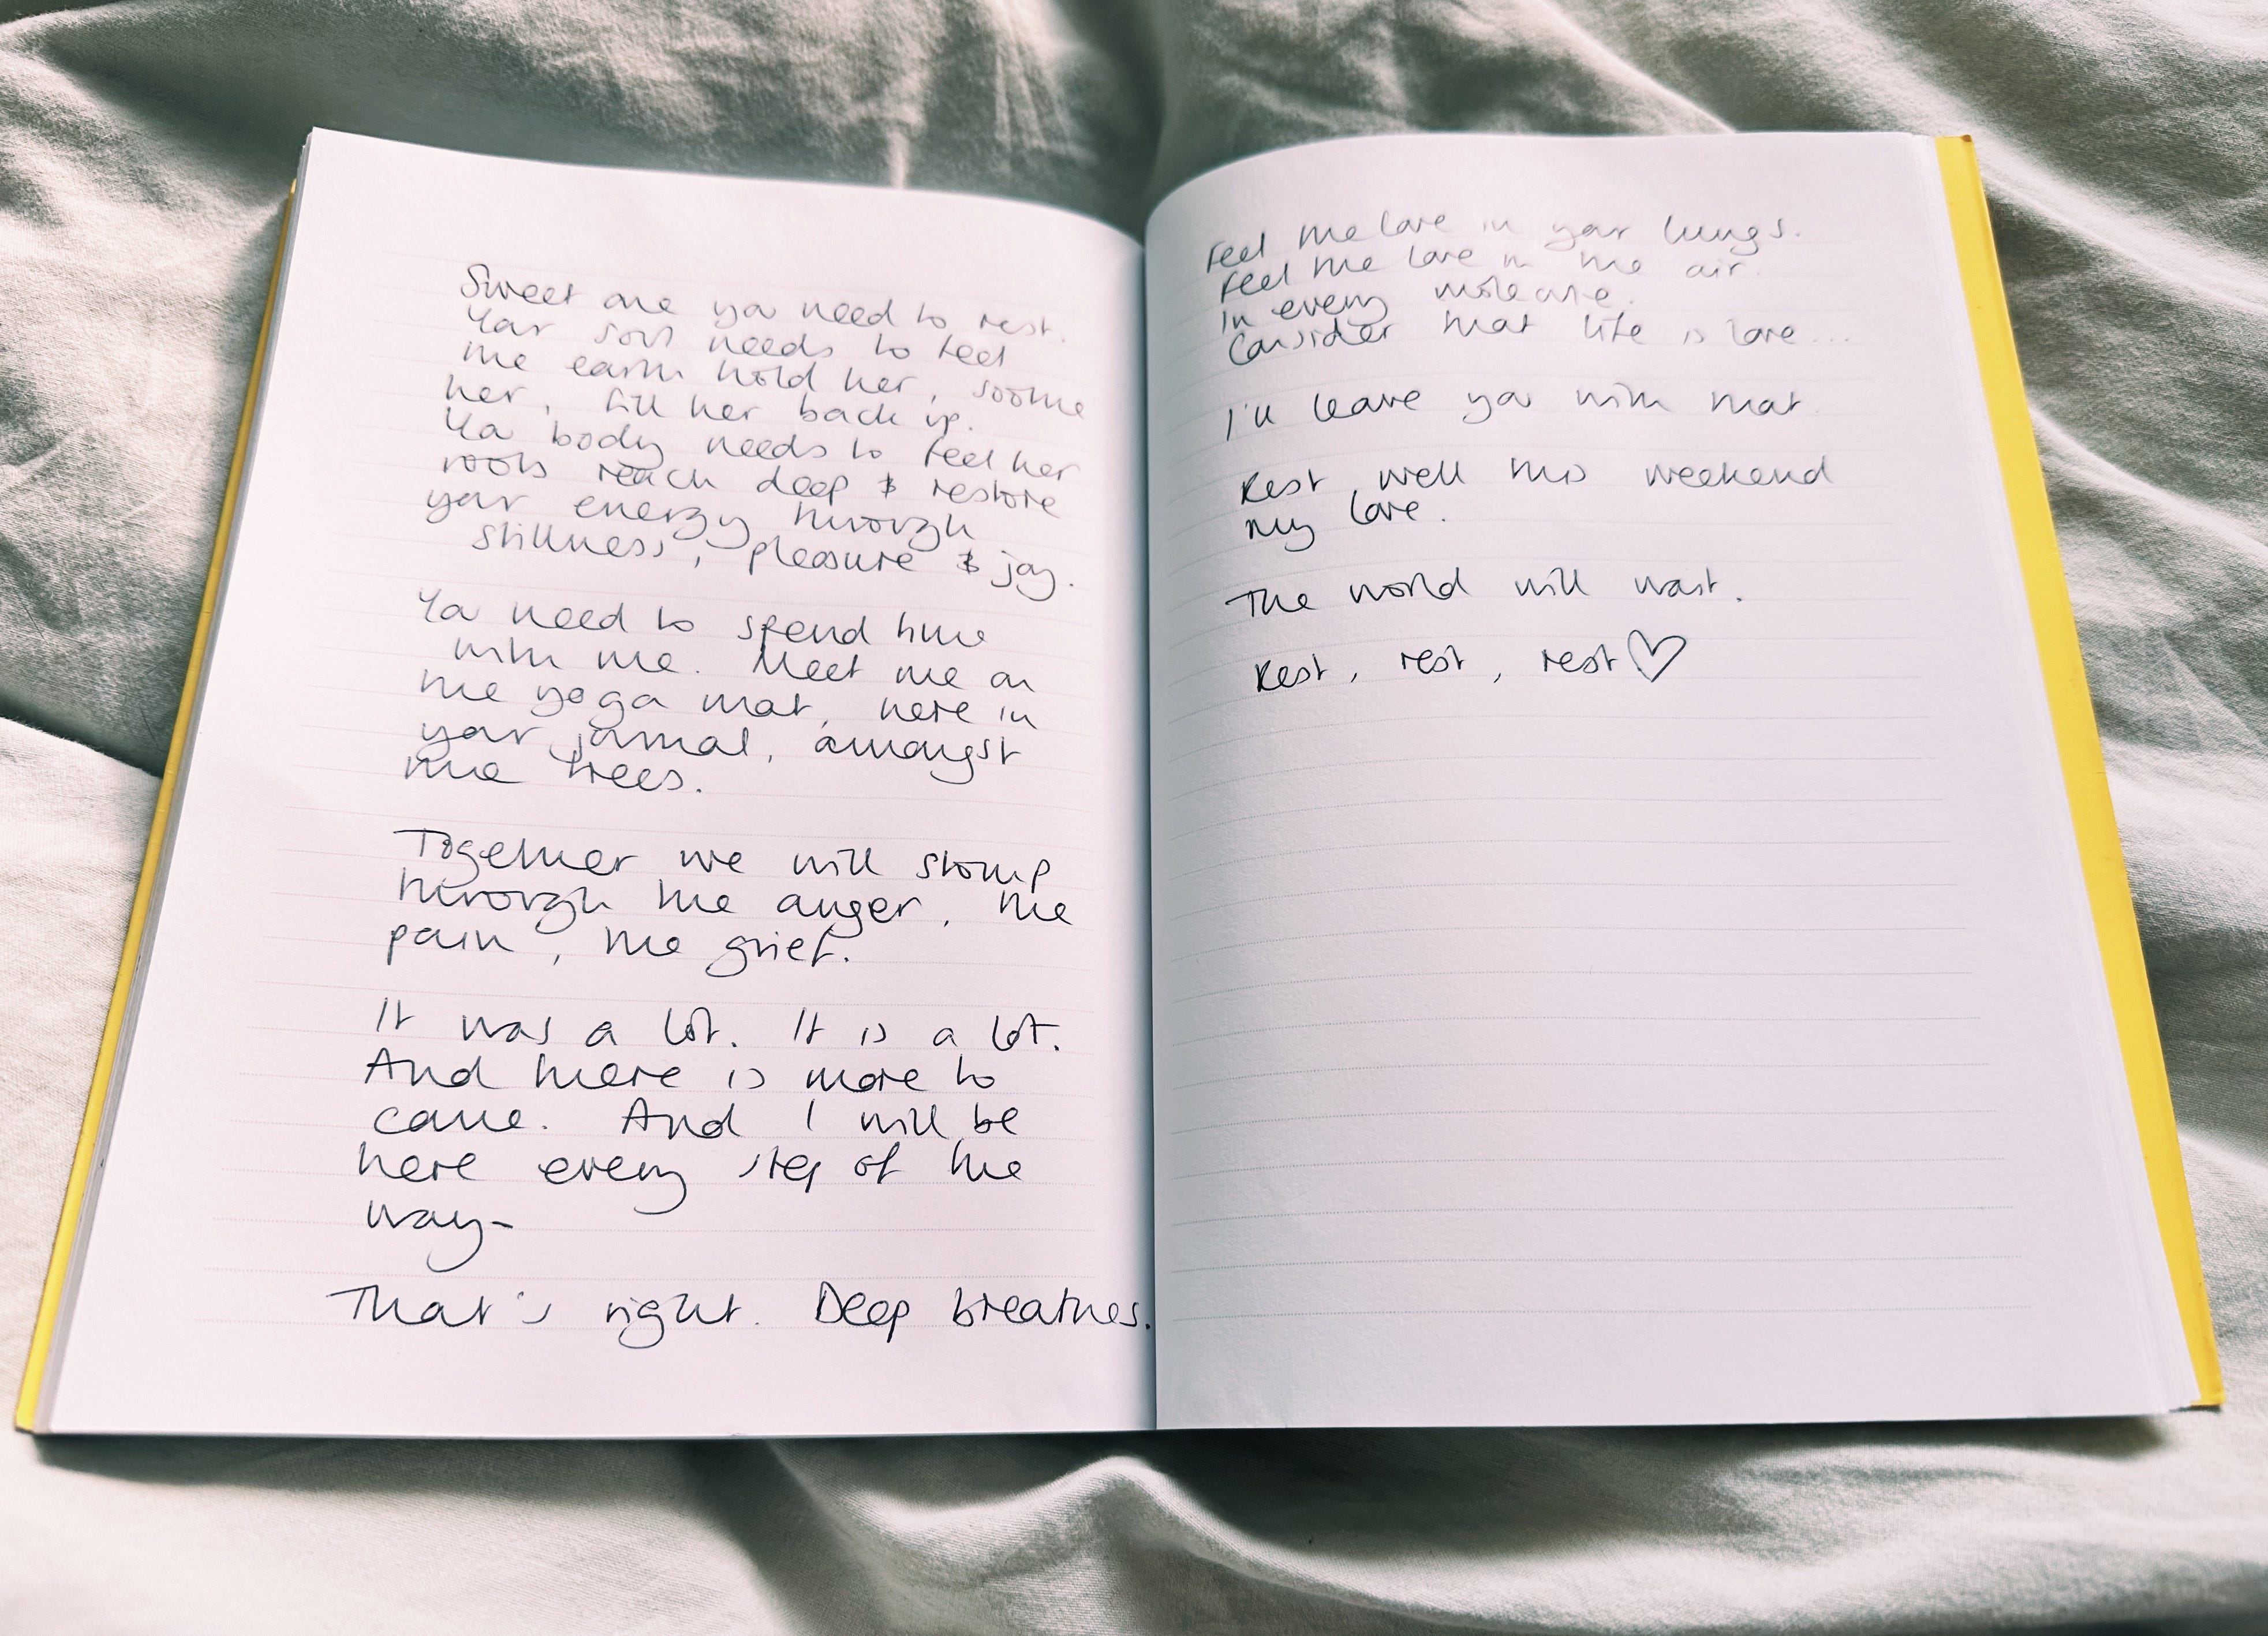 Sweet one you need to rest.
Your soul needs to feel
the earth hold her, soothe
her, fill her back up.
You body needs to feel her
roots reach deep & restore
your energy through
stillness, pleasure & joy.
You need to spend time
with me. Meet me on
the yoga mat, here in
your journal, amongst
the trees.
Together we will stomp
through the anger, the
pain, the grief.
It was a lot. It is a lot.
And there is more to
come. And I will be
here every step of the
way-
That's right. Deep breathes.
Feel the love in your lungs.
Feel the love in the air.
In every molecule.
Consider that life is love...
I'll leave you with that
Rest well this weekend
my love.
The world will wait.
Rest, rest, rest♡